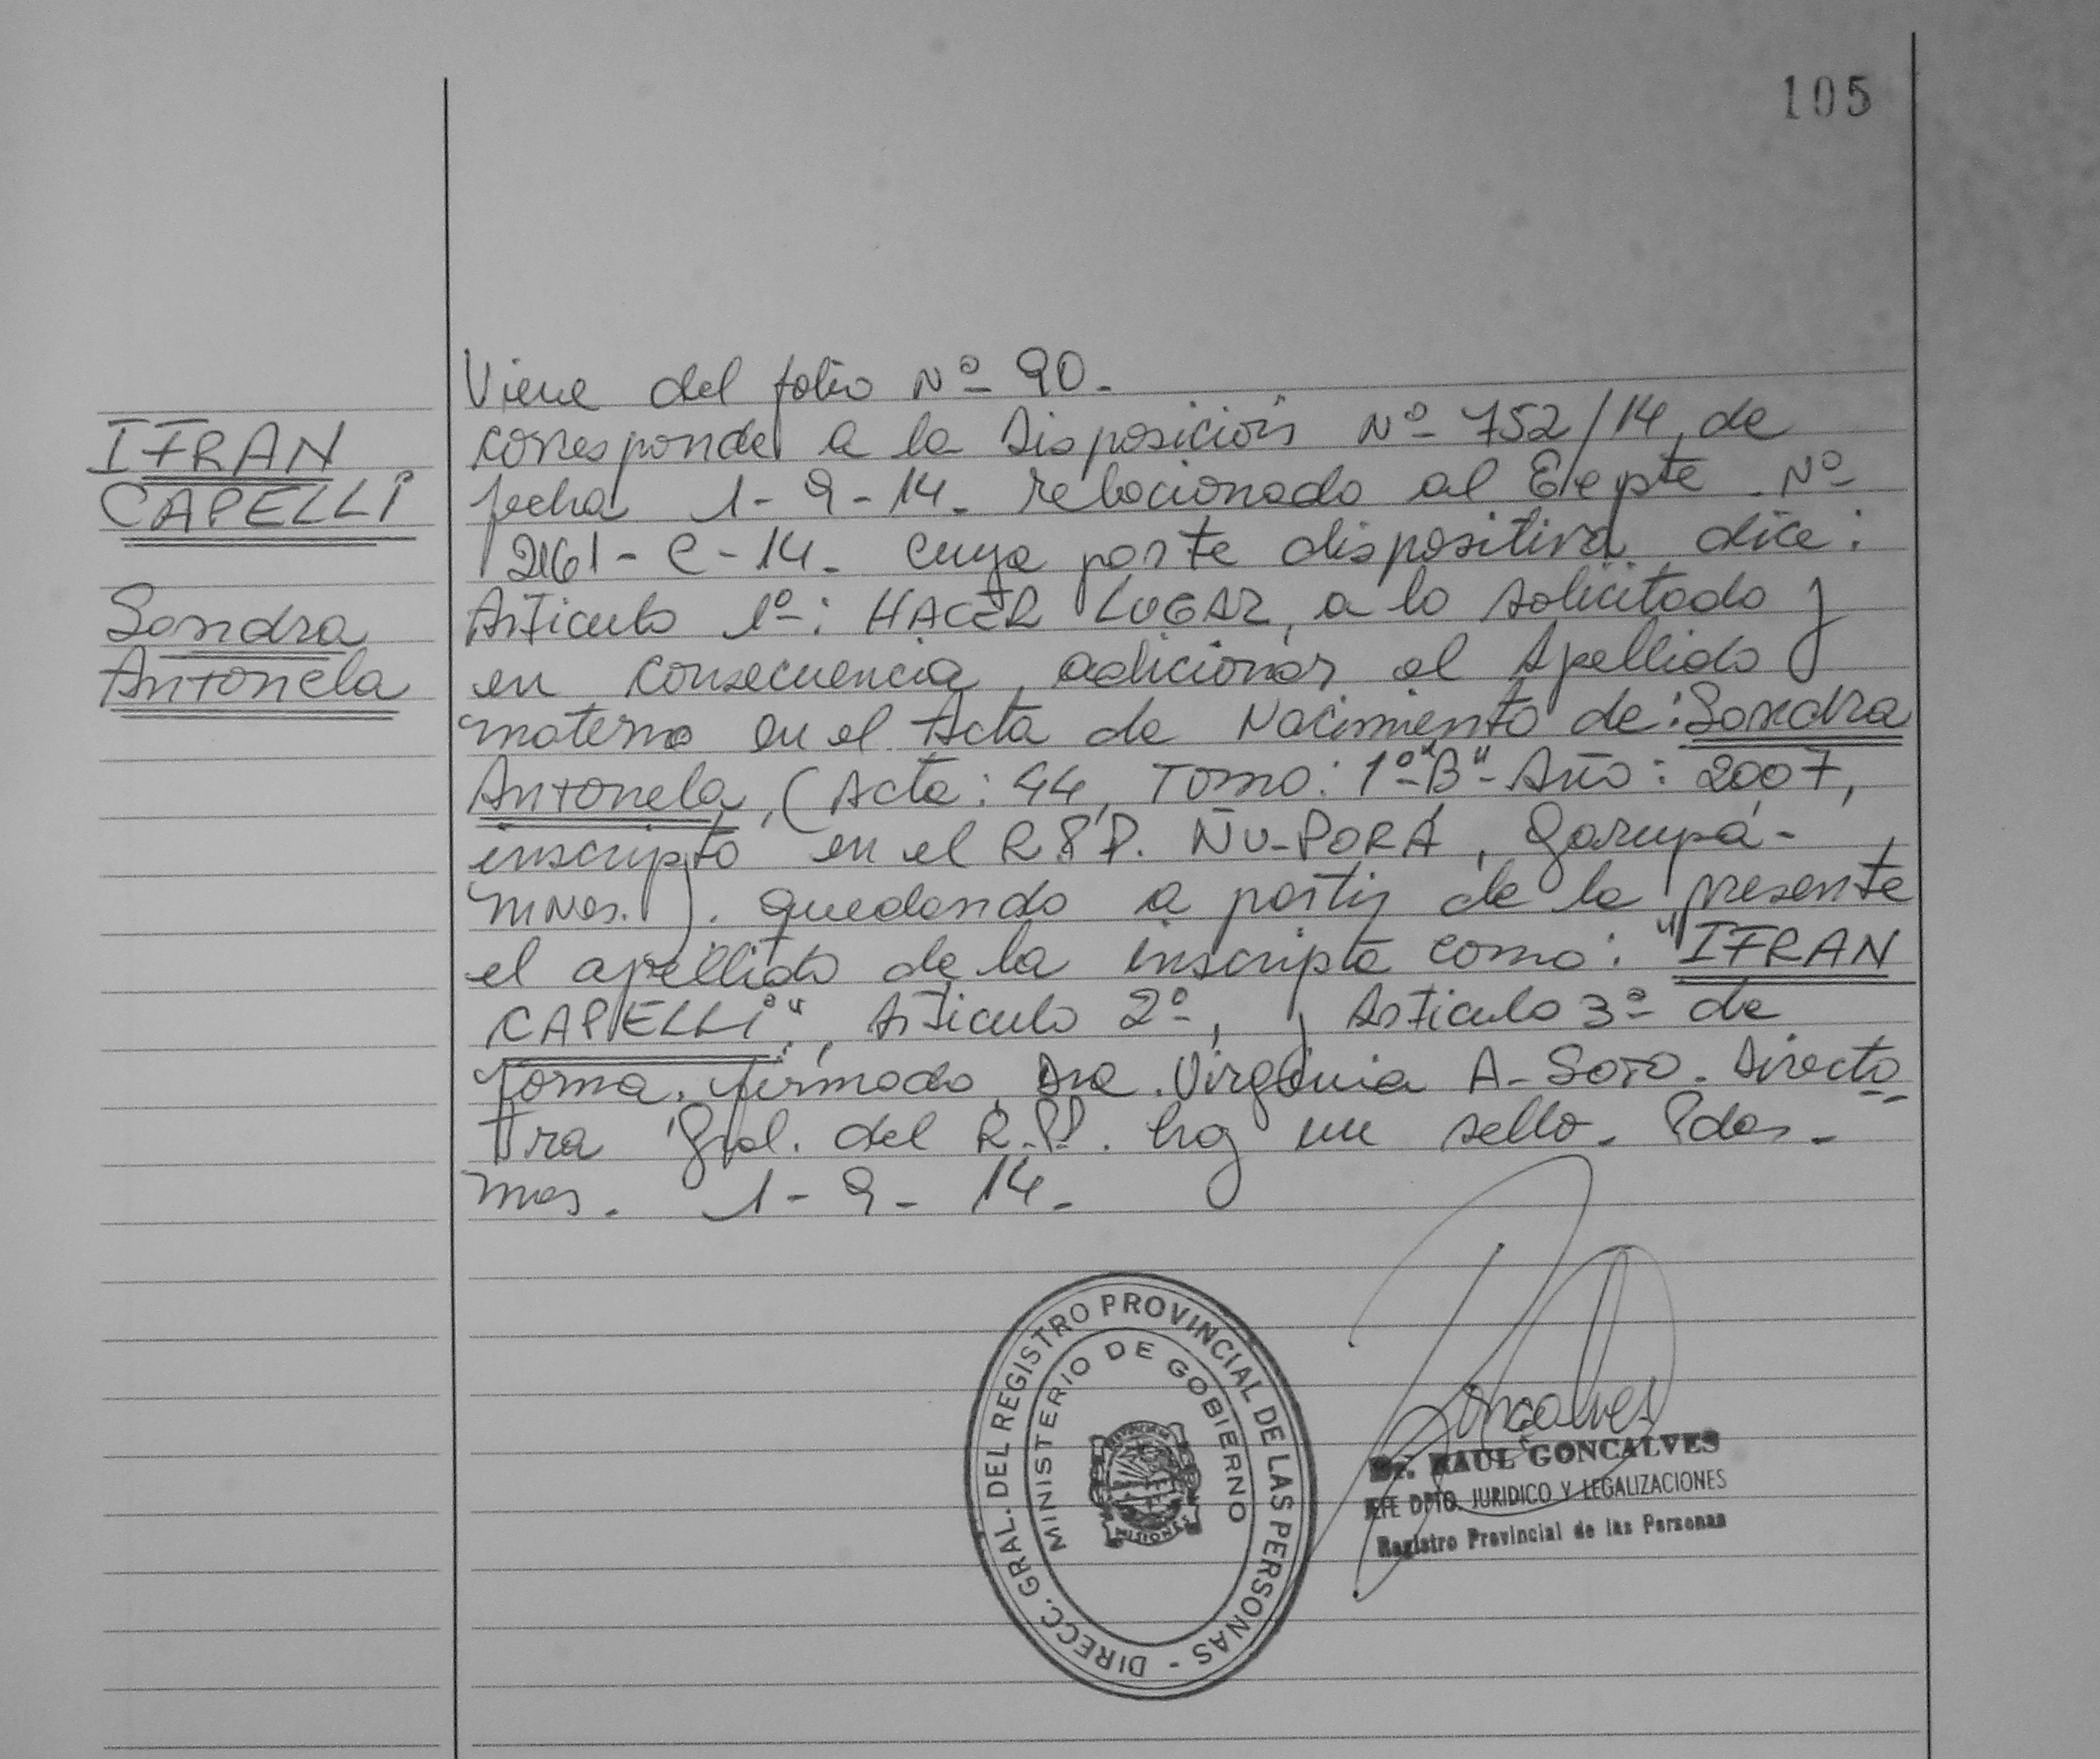 105
IFRAN
CAPELLI
Sandra
Antonela
Viene del folio Nº 90.
corresponde a la Disposición Nº 752/14, de
fecha 1-9-14. relacionado al Expte. Nº
2161-C-14. cuya parte dispositiva dice:
Articulo 1º: HACER LUGAR, a lo solicitado y
en consecuencia, adicionar el Apellido
materno en el Acta de Nacimiento de: Sandra
Antonela, (Acta: 44, Tomo: 1º "B" - Año: 2007,
inscripto en el R.P. ÑU-PORÁ, Garupá-
mnes.). quedando a partir de la presente
el apellido de la inscripta como: "IFRAN
CAPELLI", Articulo 2º, y Articulo 3º de
forma. firmado, Dra. Virginia A. Soto. Directo
ra Gral. del R.P.P. hay un sello. Pdas.
mnes. 1-9-14.
DIRECC. GRAL. DEL REGISTRO PROVINCIAL DE LAS PERSONAS -
MINISTERIO DE GOBIERNO
MISIONES
Goncalves
Dr. RAUL GONCALVES
JEFE DPTO. JURIDICO Y LEGALIZACIONES
Registro Provincial de las Personas